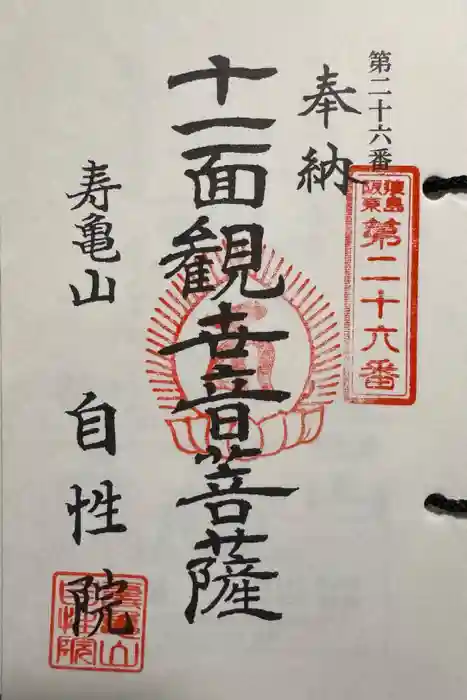 第二十六番
奉納
猿島
阪東
第二十六番
十一面観世音菩薩
寿亀山 自性院
寿亀山
自性院